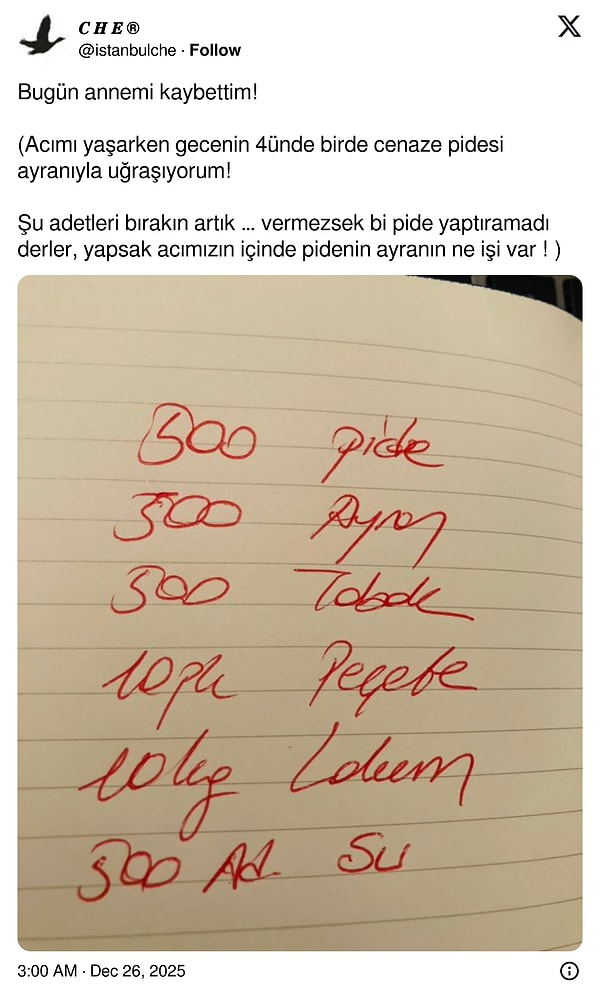 CHE®
@istanbulche · Follow
Bugün annemi kaybettim!
(Acımı yaşarken gecenin 4ünde birde cenaze pidesi
ayranıyla uğraşıyorum!
Şu adetleri bırakın artık ... vermezsek bi pide yaptıramadı
derler, yapsak acımızın içinde pidenin ayranın ne işi var ! )
500 pide
500 Ayran
500 Tabak
10 pk Peçete
10 kg Lokum
500 Ad. Su
3:00 AM · Dec 26, 2025